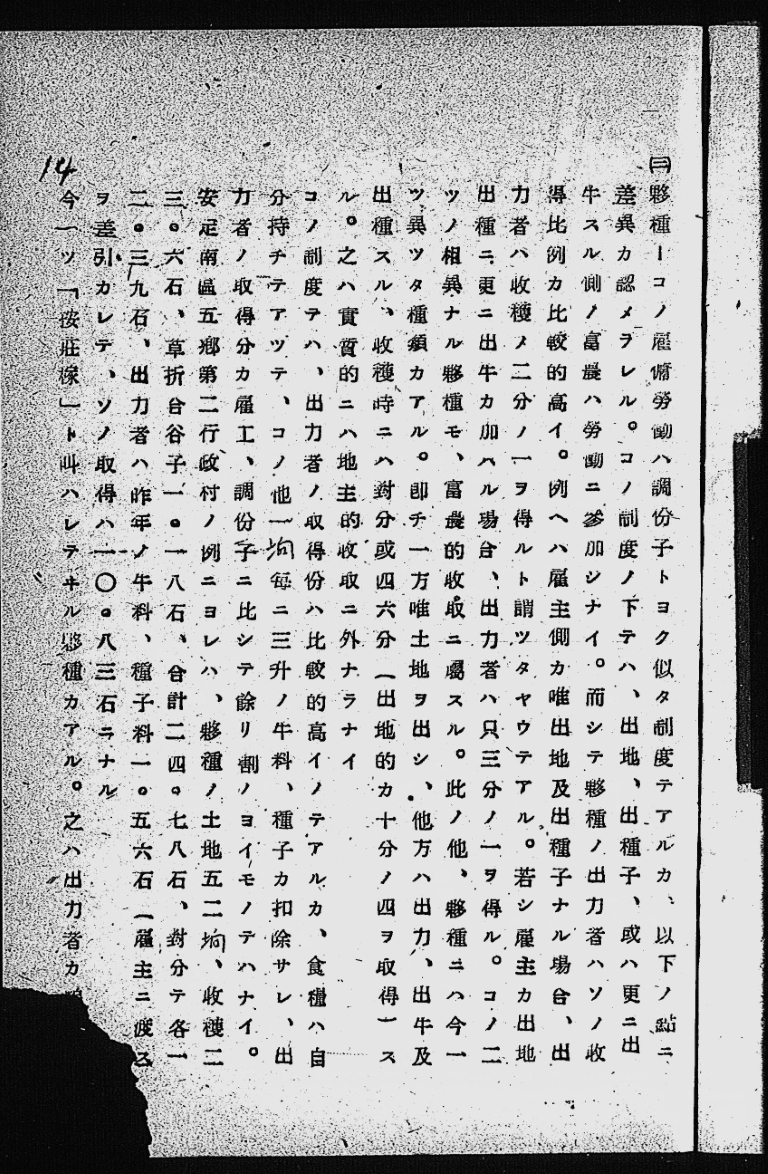 ㈢夥種ーコノ雇傭勞働ハ調份子トヨク似タ制度テアルカ、以下ノ點ニ
差異カ認メラレル。コノ制度ノ下テハ、出地、出種子、或ハ更ニ出
牛スル側ノ富農ハ勞働ニ參加シナイ。而シテ夥種ノ出力者ハソノ收
得比例カ比較的高イ。例ヘハ雇主側カ唯出地及出種子ナル場合、出
力者ハ收穫ノ二分ノ一ヲ得ルト謂ツタヤウテアル。若シ雇主カ出地
出種ニ更ニ出牛カ加ハル場合、出力者ハ只三分ノ一ヲ得ル。コノ二
ツノ相異ナル夥種モ、富農的收取ニ屬スル。此ノ他、夥種ニハ今一
ツ異ツタ種類カアル。卽チ一方唯土地ヲ出シ、他方ハ出力、出牛及
出種スル、收穫時ニハ對分或四六分(出地的カ十分ノ四ヲ取得)ス
ル。之ハ實質的ニハ地主的收取ニ外ナラナイ
コノ制度テハ、出力者ノ取得份ハ比較的高イノテアルカ、食糧ハ自
分持チテアツテ、コノ他一垧每ニ三升ノ牛料、種子カ扣除サレ、出
力者ノ取得分カ雇工、調份子ニ比シテ餘リ割ノヨイモノテハナイ。
安足南區五鄕第二行政村ノ例ニヨレハ、夥種ノ土地五二垧、收穫二
三。六石、草折合谷子一。一八石、合計二四。七八石、對分テ各一
二。三九石、出力者ハ昨年ノ牛料、種子料一。五六石(雇主ニ渡ス
ヲ差引カレテ、ソノ取得ハ一〇。八三石ニナル
今一ツ「按莊稼」ト叫ハレテヰル夥種カアル。之ハ出力者カ
14